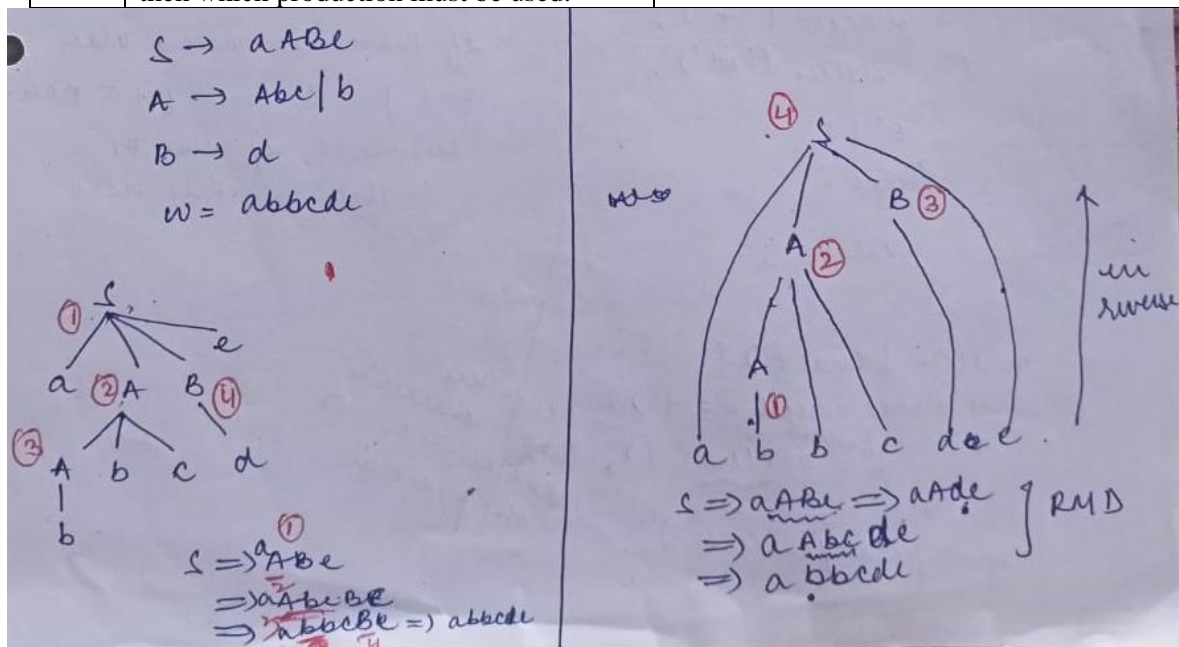 then which production must be used.
S → aABe
A → Abc | b
B → d
w = abbcde
① S
a ② A B ④ e
③ A b c d
b
①
S ⇒ aABe
2
⇒ aAbcBe
⇒ abbcBe ⇒ abbcde
4
④ S
B ③
A ②
A
①
a b b c d e
in
reverse
S ⇒ aABe ⇒ aAde
⇒ aAbcde
⇒ abbcde
RMD